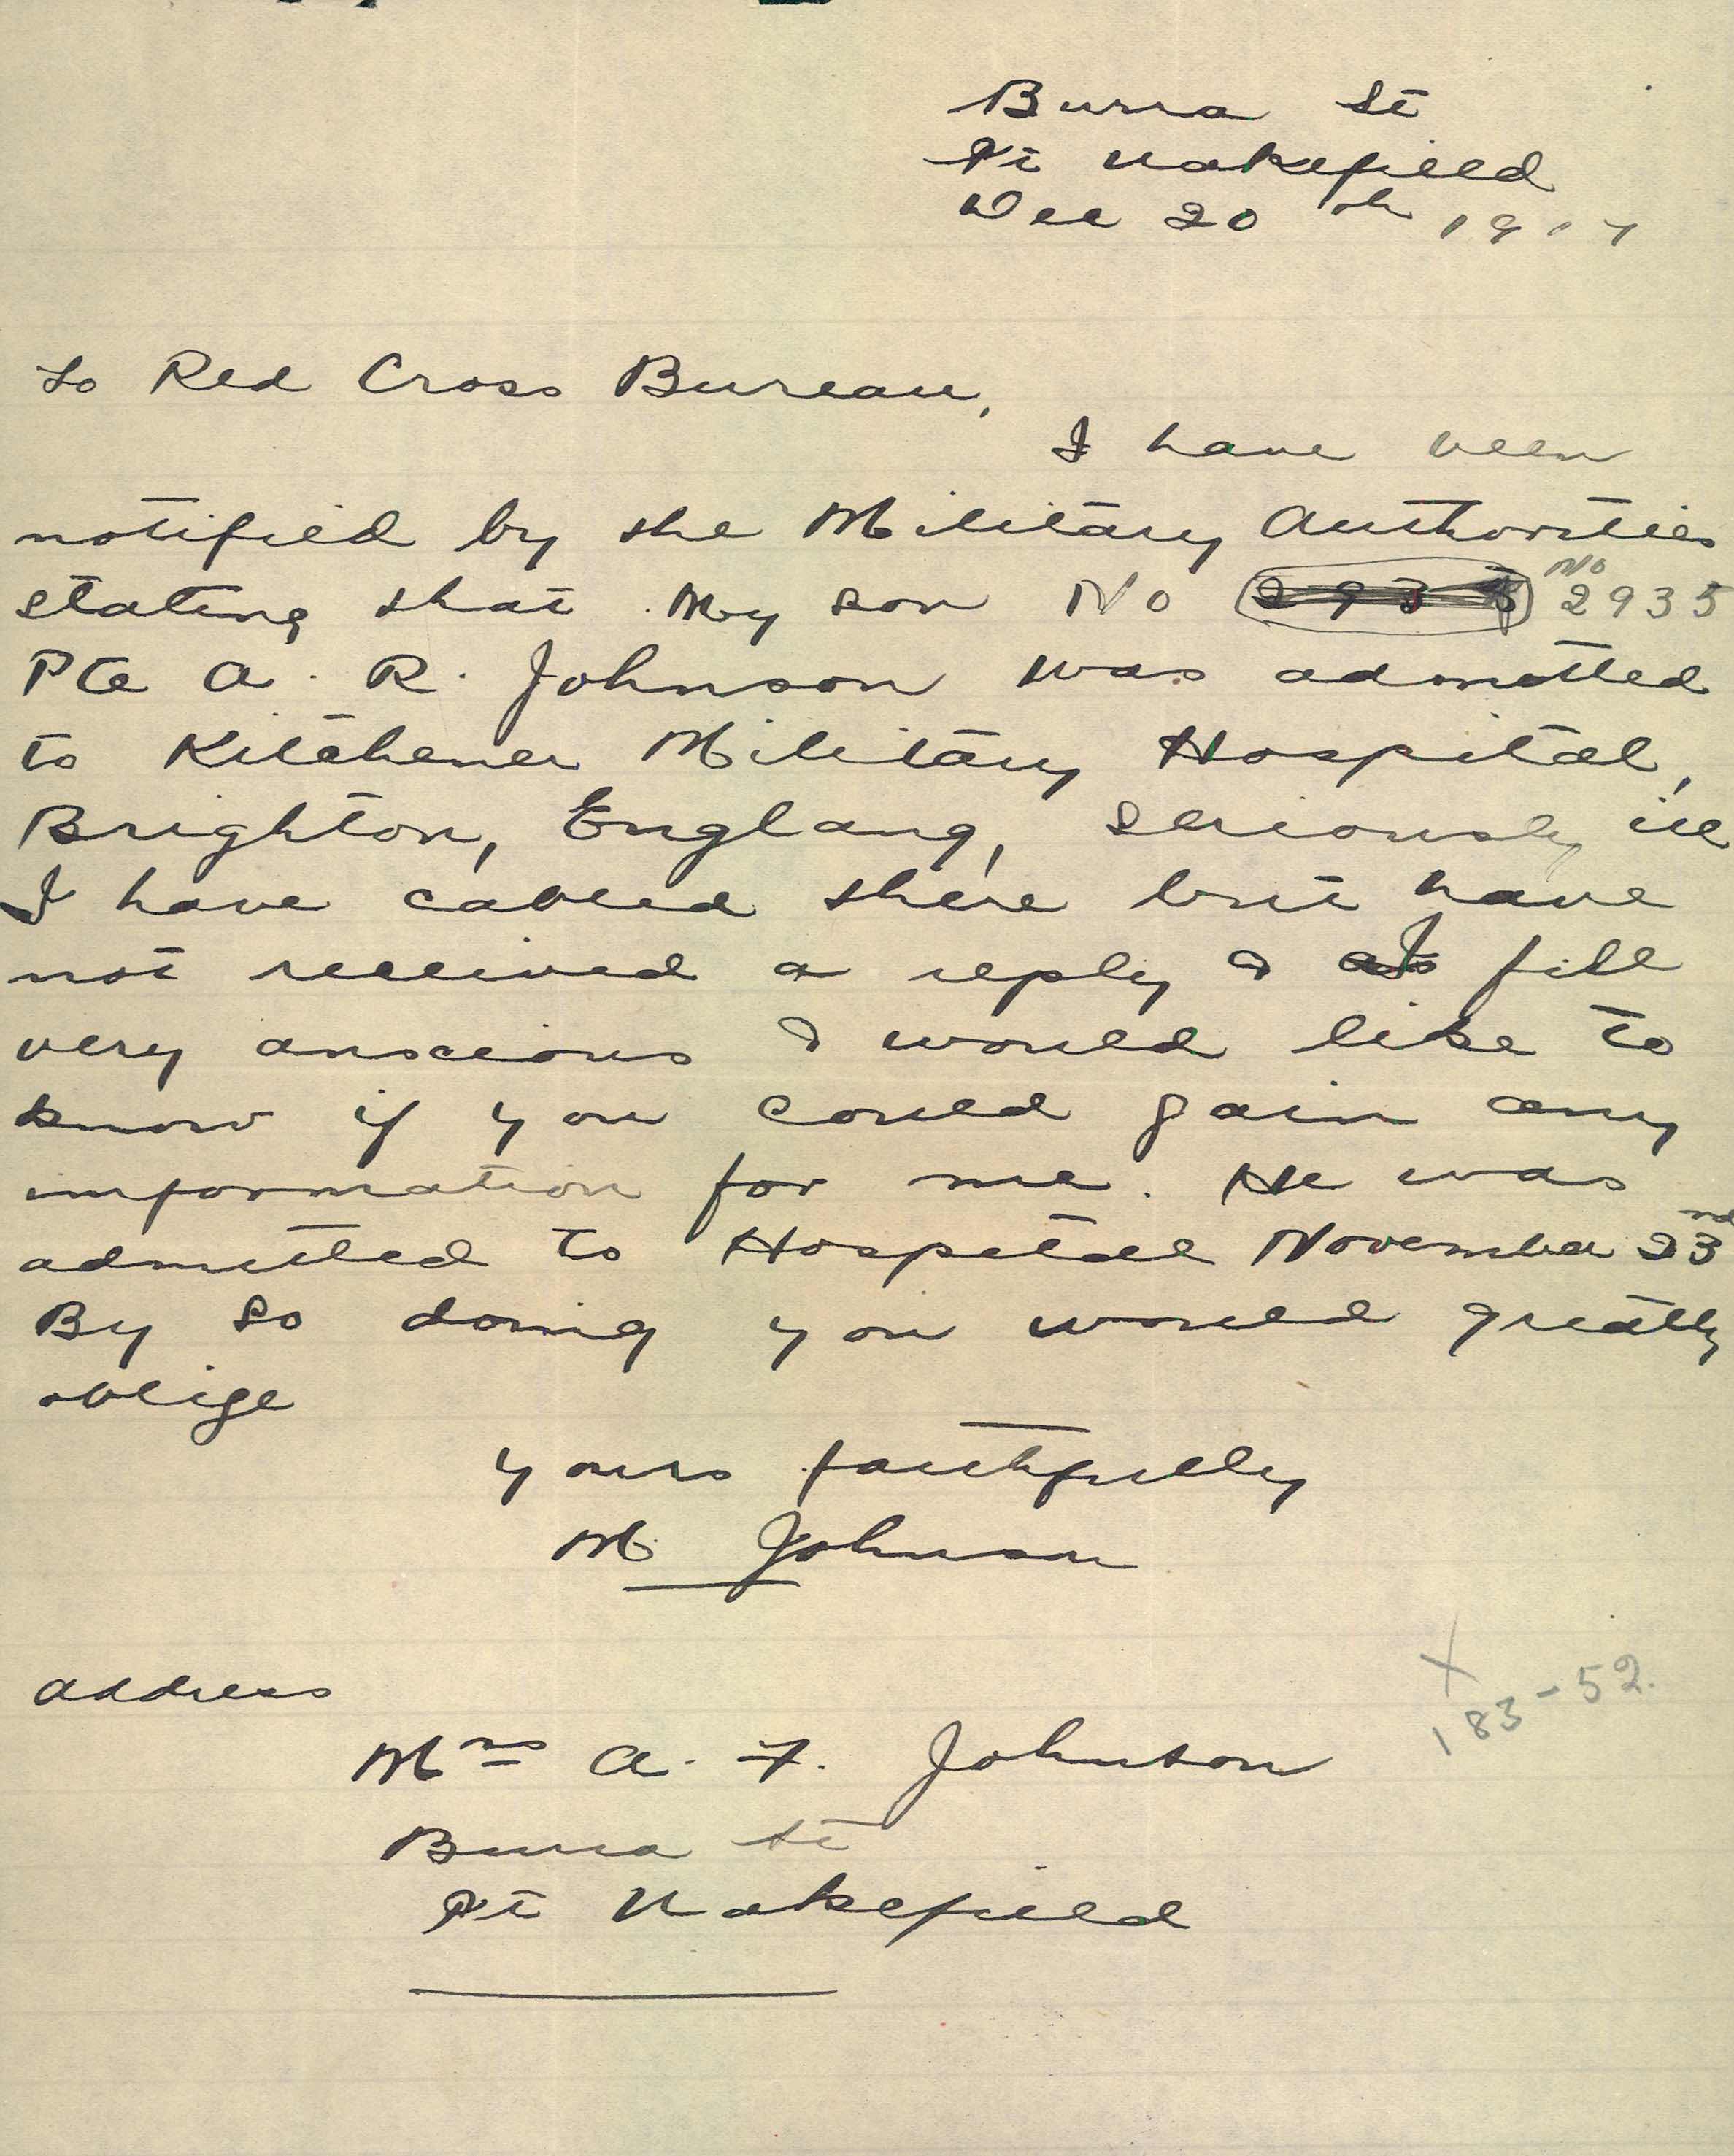 Burra St
Pt Wakefield
Dec 20th 1917
To Red Cross Bureau,
I have been
notified by the Military Authorities
stating that my son No 2935 No 2935
Pte A. R. Johnson was admitted
to Kitchener Military Hospital,
Brighton, England, seriously ill
I have cabled there but have
not received a reply & I fell
very anscious & would like to
know if you could gain any
information for me. He was
admitted to Hospital November 23nd
By so doing you would greatly
oblige
yours faithfully
M Johnson
address
Mrs A. F. Johnson
Burra St
Pt Wakefield
X
183-52.